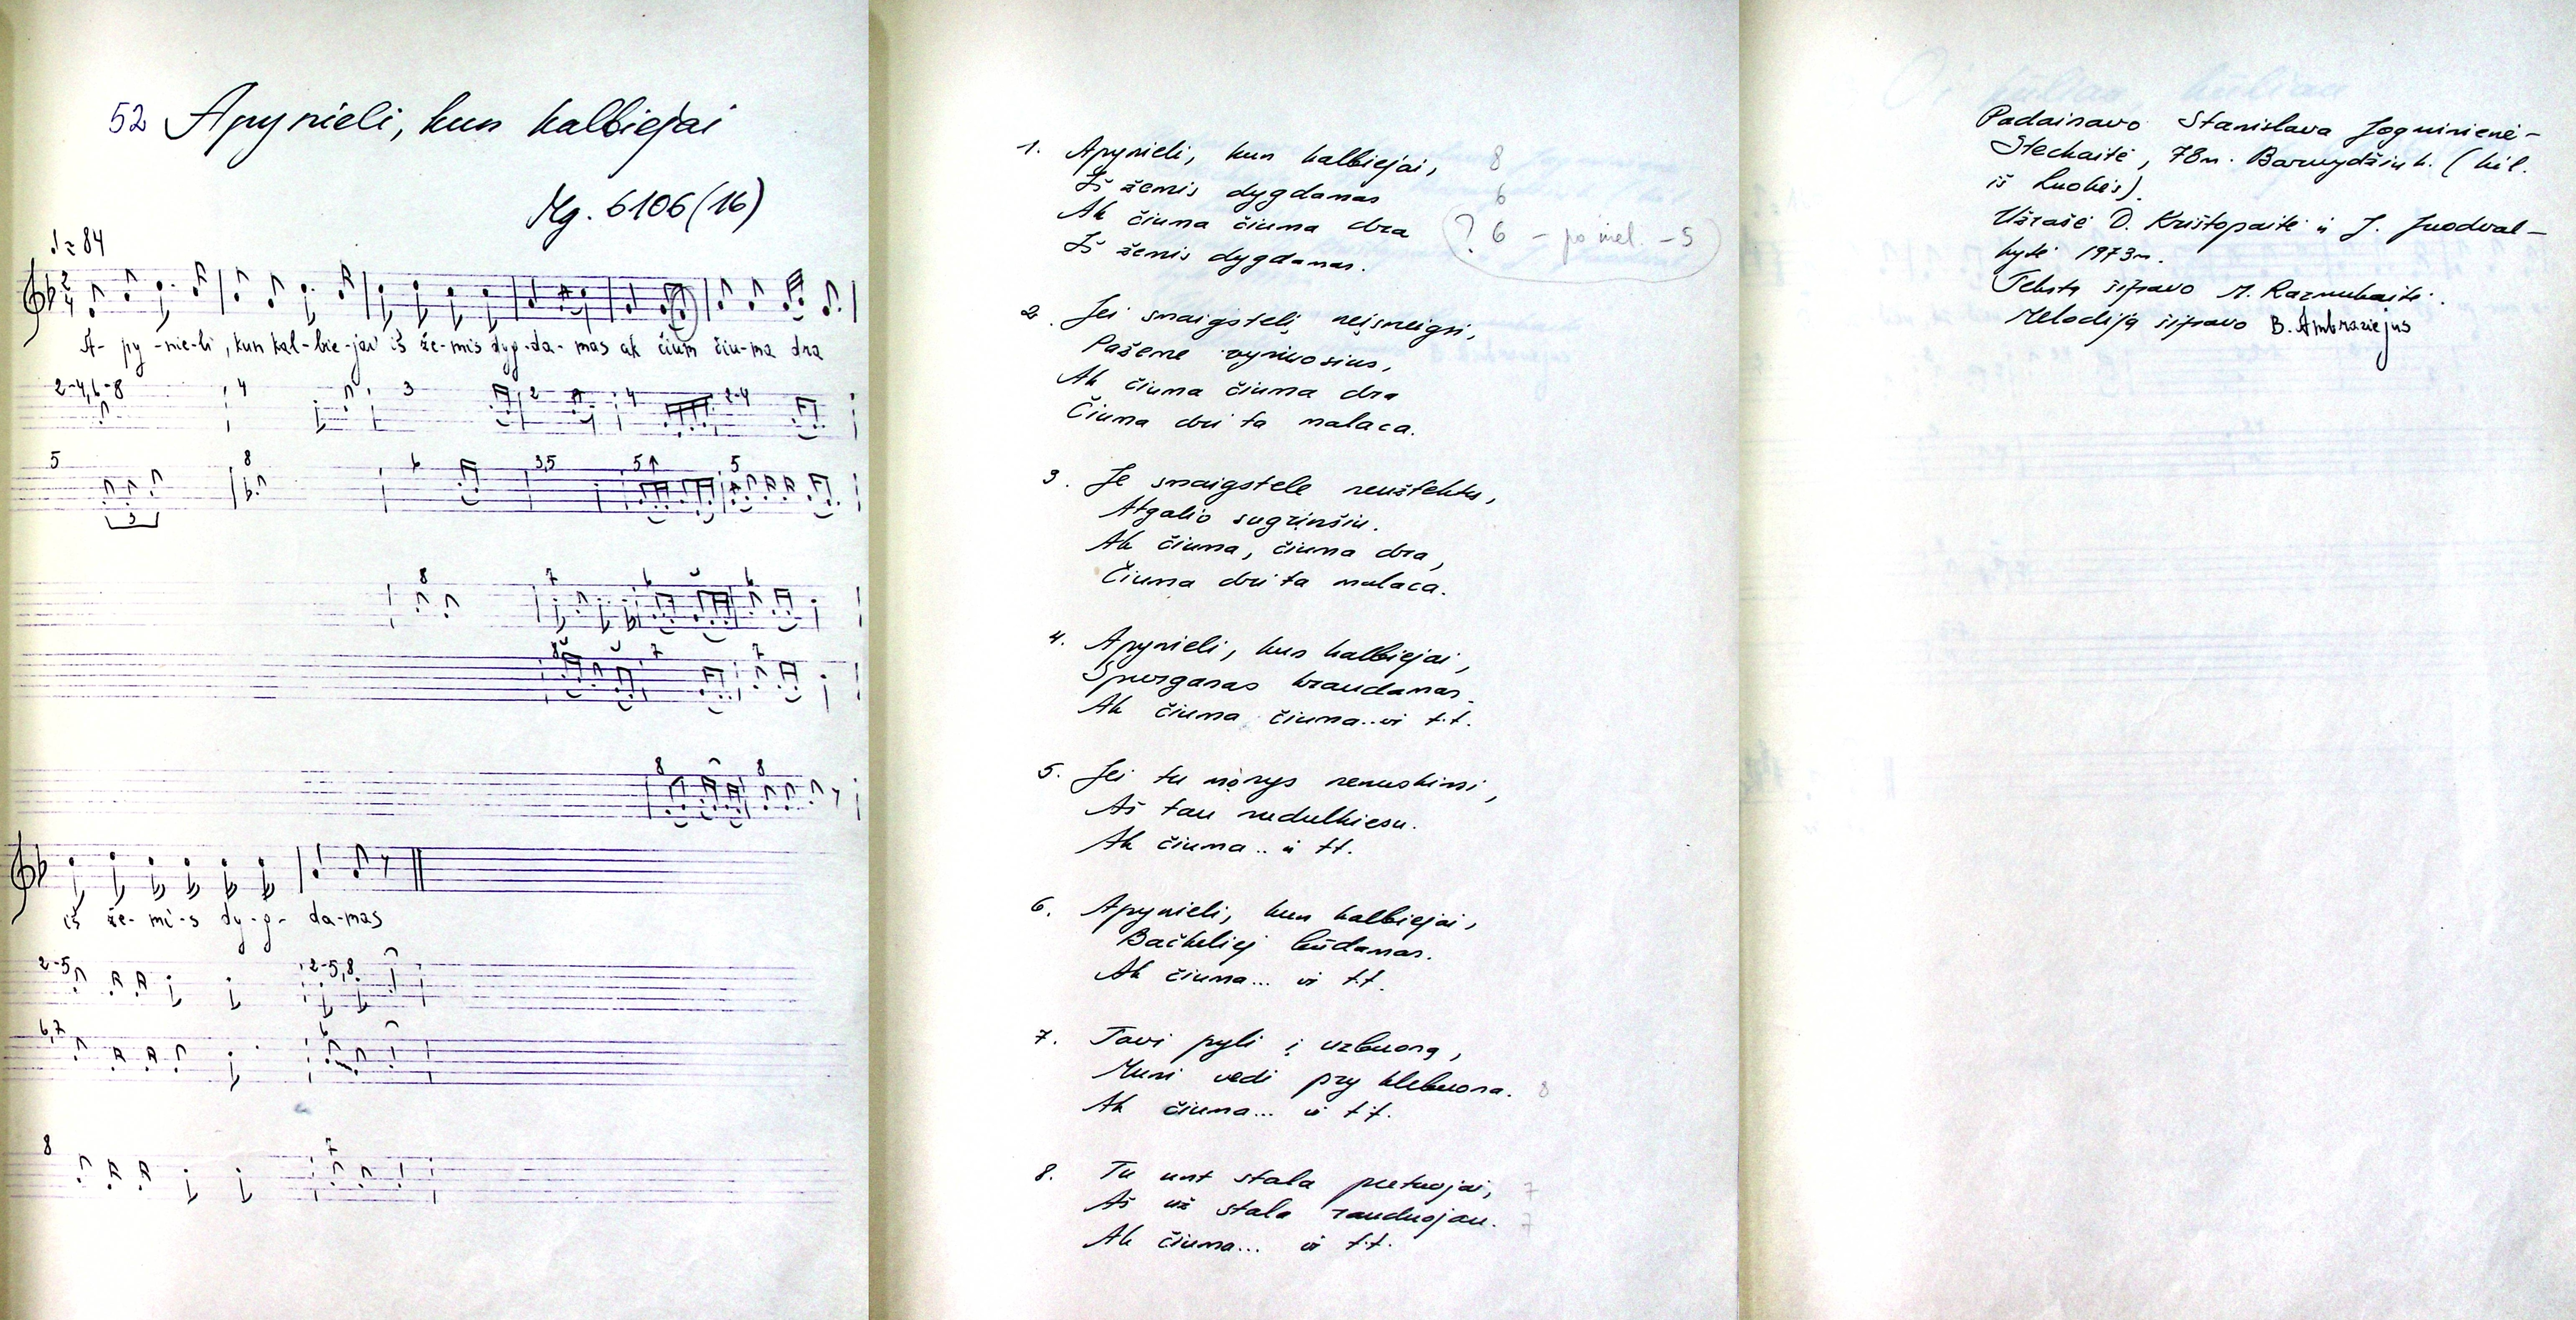 52 Apynieli, kun kalbiejai
Mg. 6106(16)
♩≈84
A- py -nie-li, kun kal-bie-jai iš že-mis dyg-da- mas ak čium čiu-ma dra
2-4,6-8 4 3 2 4 2-4
5 8 6 3,5 5 5
3
8 7 6 6
8 7 7
8 8
iš že- mi-s dy-g- da-mas
2-5 2-5,8
6,7 6
8 7
1. Apynieli, kun kalbiejai, 8
Iš žemis dygdamas 6
Ak čiuma čiuma dra ? 6 - po mel - 5
Iš žemis dygdamas.
2. Jei smaigstelį neįsmeigsi,
Pažeme vyniosius,
Ak čiuma čiuma dra
Čiuma dri ta malaca.
3. Je smaigstele neužtektu,
Atgalio sugrįnšiu.
Ak čiuma, čiuma dra,
Čiuma dri ta malaca.
4. Apynieli, kun kalbiejai,
Spurganas kraudamas.
Ak čiuma čiuma.. ir t.t.
5. Jei tu norys nenuskinsi,
Aš tau nudulkiesu.
Ak čiuma .. ir tt.
6. Apynieli, kun kalbiejai,
Bačkeliej būdamas.
Ak čiuma... ir t.t.
7. Tavi pyli į uzbuoną,
Muni vedi pry klebuona. 8
Ak čiuma... ir t.t.
8. Tu unt stala putuojai, 7
Aš už stala rauduojau. 7
Ak čiuma... ir t.t.
Padainavo Stanislava Joguminienė-
Stechaitė, 78m. Barvydžiu k. (kil.
iš Luokės).
Užrašė D. Krištopaitė ir J. Juodval-
kytė 1973m.
Tekstą šifravo M. Razmukaitė.
Melodiją šifravo B. Ambraziejus